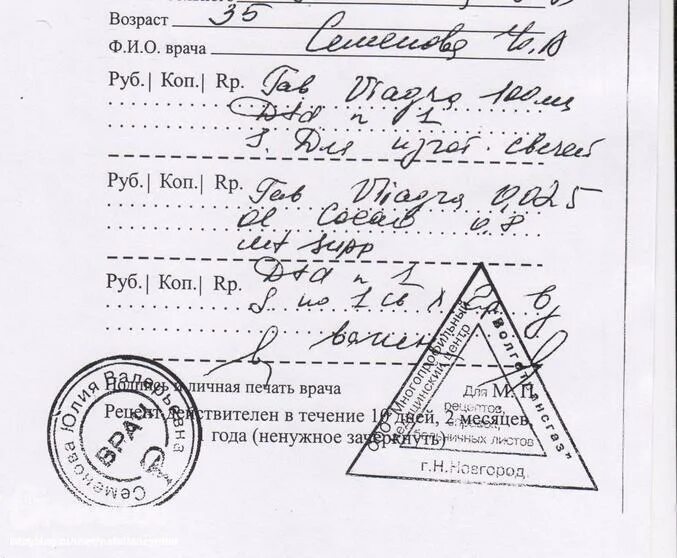 Возраст 35
Ф.И.О. врача Семенова Ю.В
Руб.| Коп.| Rp. Tab Viagra 100мг
Dtd n 1
S. Для изгот. свечей
Руб.| Коп.| Rp. Tab Viagra 0,025
Ol Cacao 0,8
Mf supp
Руб.| Коп.| Rp. Dtd n 1
S по 1 св х 2р в
Подпись и личная печать врача
М.П.
Рецепт действителен в течение 10 дней, 2 месяцев,
1 года (ненужное зачеркнуть)
Семенова Юлия Валерьевна
ВРАЧ
ООО "Многопрофильный
медицинский центр
"Волготрансгаз"
Для
рецептов,
больничных листов
г.Н.Новгород.